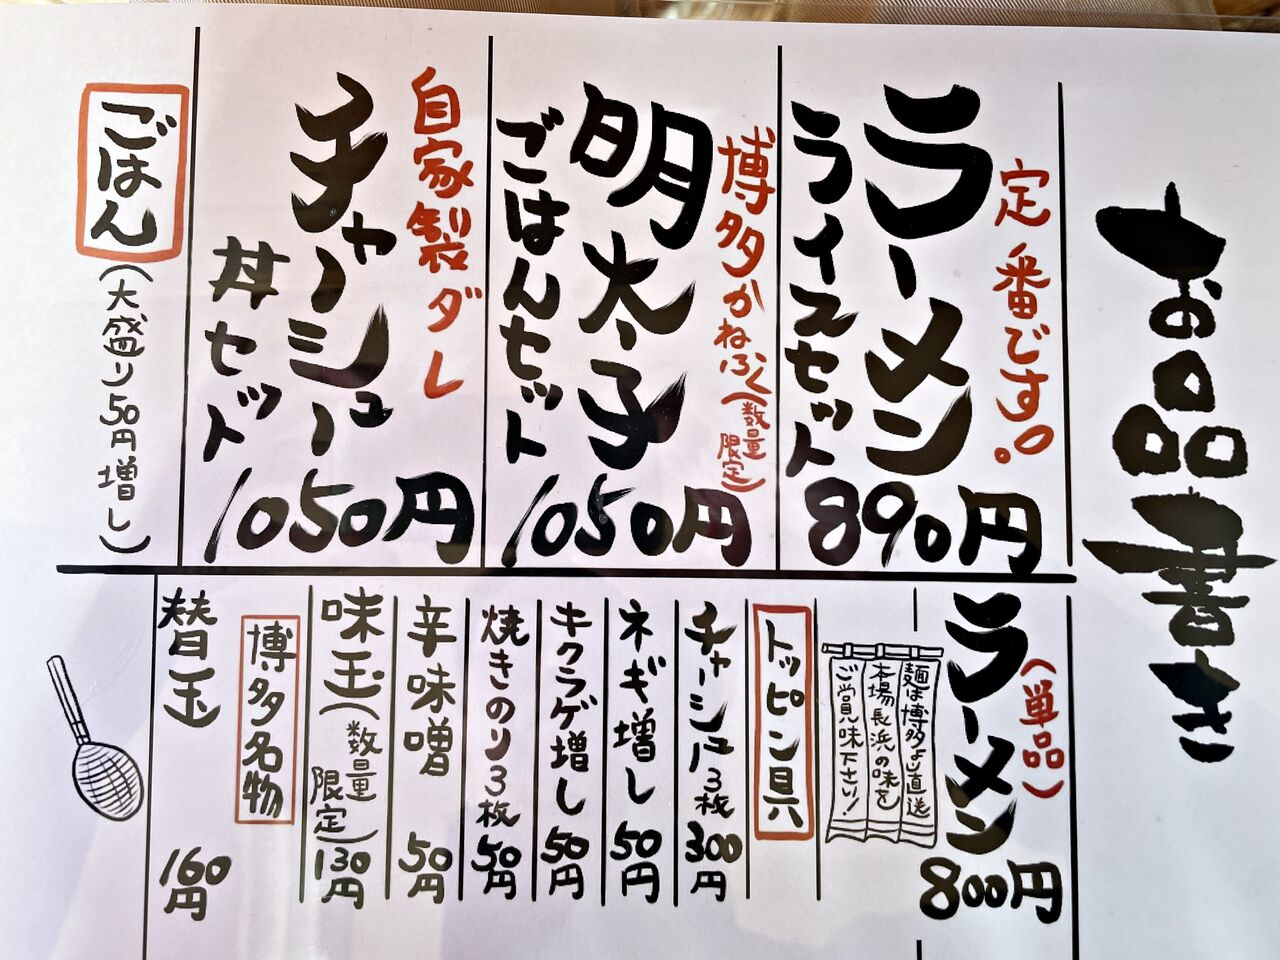 お品書き
定番です。
ラーメン
ライスセット
890円
博多かねふく(数量限定)
明太子
ごはんセット
1050円
自家製ダレ
チャーシュー
丼セット
1050円
ごはん
(大盛り50円増し)
(単品)
ラーメン
800円
麺は博多より直送
本場長浜の味を
ご賞味下さい!
トッピン具
チャーシュー3枚 300円
ネギ増し 50円
キクラゲ増し 50円
焼きのり3枚 50円
辛味噌 50円
味玉(数量限定) 130円
博多名物
替玉 160円